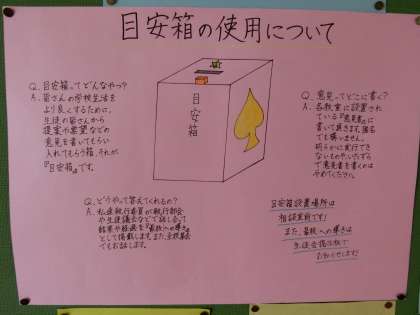 目安箱の使用について
Q. 目安箱ってどんなやつ?
A. 皆さんの学校生活を
より良くするために、
生徒の皆さんから
提案や要望などの
意見を書いてもらい
入れてもらう箱、それが
『目安箱』です。
目安箱
Q. 意見ってどこに書く?
A. 各教室に設置され
ている『意見書』に
書いて頂きます。匿名
でも構いません。
明らかに実行でき
ないものや、いたずら
で意見を書くのは
やめてください。
Q. どうやって答えてくれるの?
A. 私達執行委員が執行部会
や生徒議会などで話し合って
結果や経過を『
への導き』
として掲載します。また、全校集会
でもお話します。
目安箱設置場所は
相談室前です!
また、
への導きは
生徒会掲示板で
お知らせします!